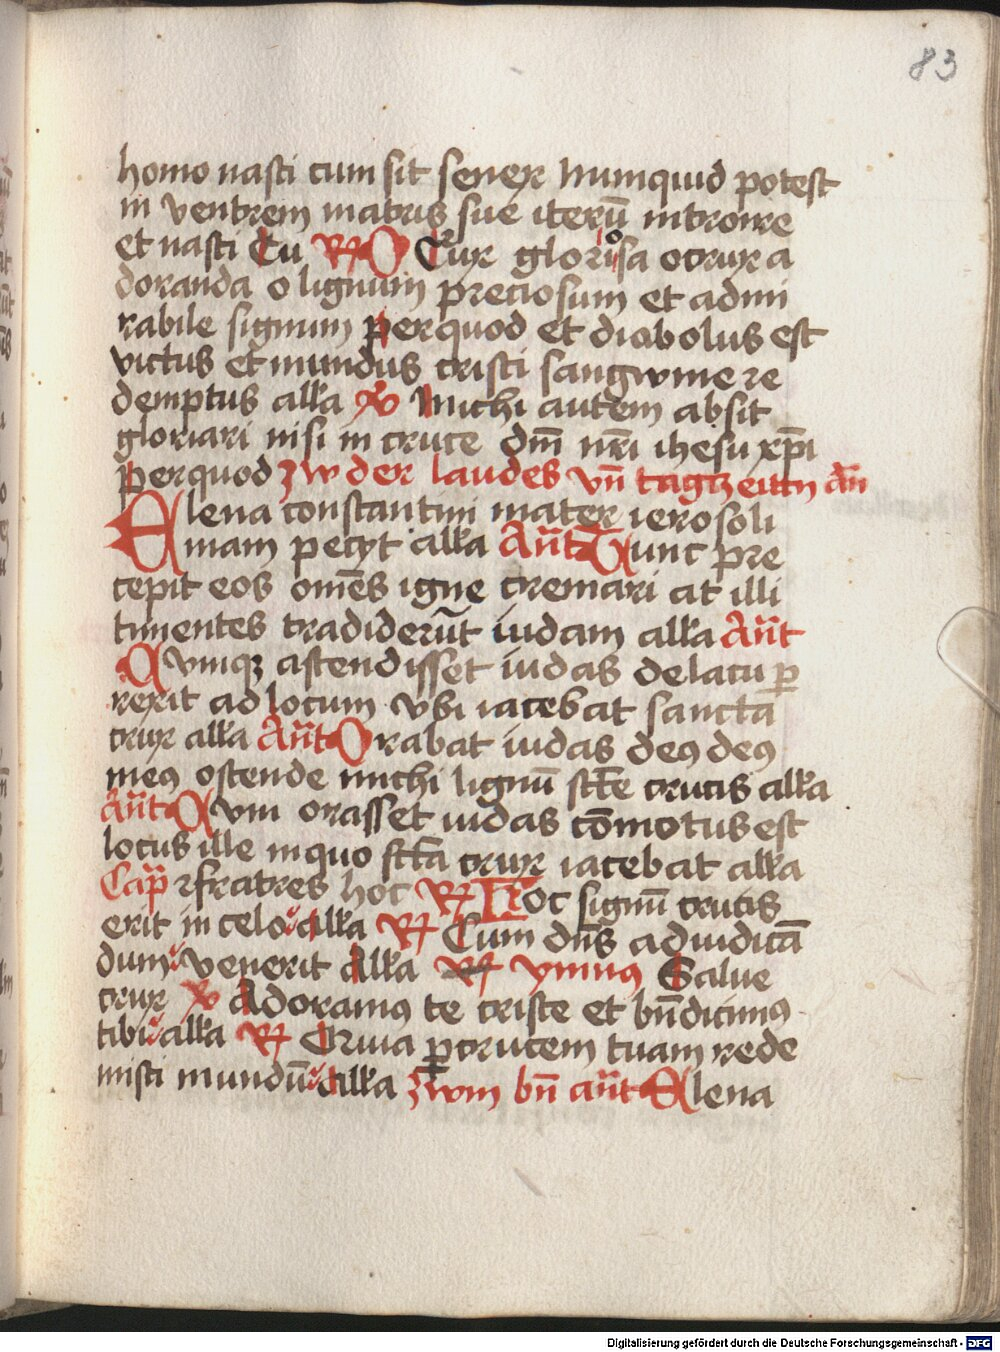 83
homo nasci cum sit senex Numquid potest
in ventrem matris sue iterū introire
et nasci Tu R O Crux gloriosa o crux a
doranda o lignum preciosum et admi
rabile signum per quod et diabolus est
victus et mundus cristi sangwine re
demptus alla V Michi autem absit
gloriari nisi in cruce dm̄ nr̄i ihesu xp̄i
per quod zw der laudes vn̄ tagzeittn an̄
Elena constantini mater ierosoli
mam pecyt alla Ant Tunc pre
cepit eos om̄es igne cremari at illi
timentes tradiderūt iudam alla Ant
Cumq ascendisset iudas de lacu p
rexit ad locum vbi iacebat sancta
crux alla Ant Orabat iudas deus deus
meus ostende michi lignū sctē crucis alla
Ant Cum orasset iudas cōmotus est
locus ille in quo sctā crux iacebat alla
Cap̄ fratres hoc R Hoc signū crucis
erit in celo alla R Cum dn̄s ad iudicā
dum venerit Alla ymnus Salue
crux V Adoramus te criste et bn̄dicimus
tibi alla R Quia p crucem tuam rede
misti mundū alla zwm bn̄ ant Elena
Digitalisierung gefördert durch die Deutsche Forschungsgemeinschaft - DFG